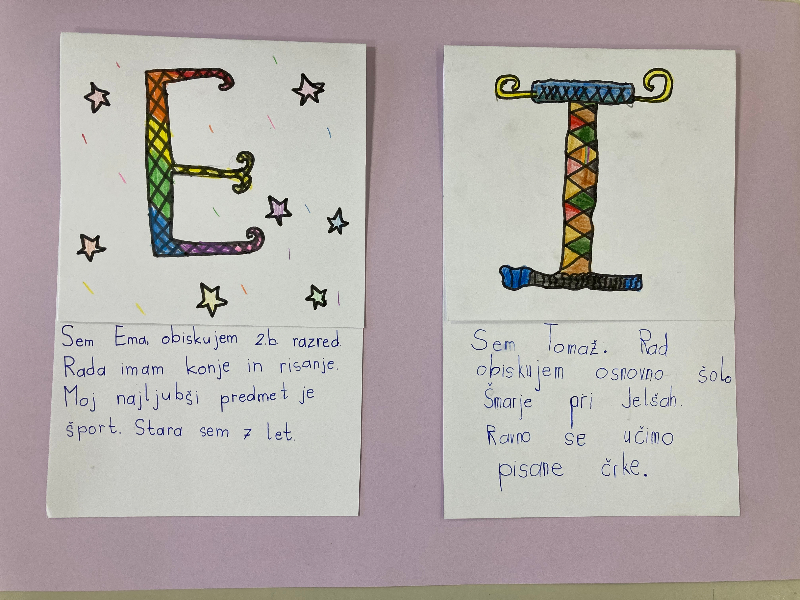 E
Sem Ema, obiskujem 2.b razred.
Rada imam konje in risanje.
Moj najljubši predmet je
šport. Stara sem 7 let.
I
Sem Tomaž. Rad
obiskujem osnovno šolo
Šmarje pri Jelšah.
Ravno se učimo
pisane črke.